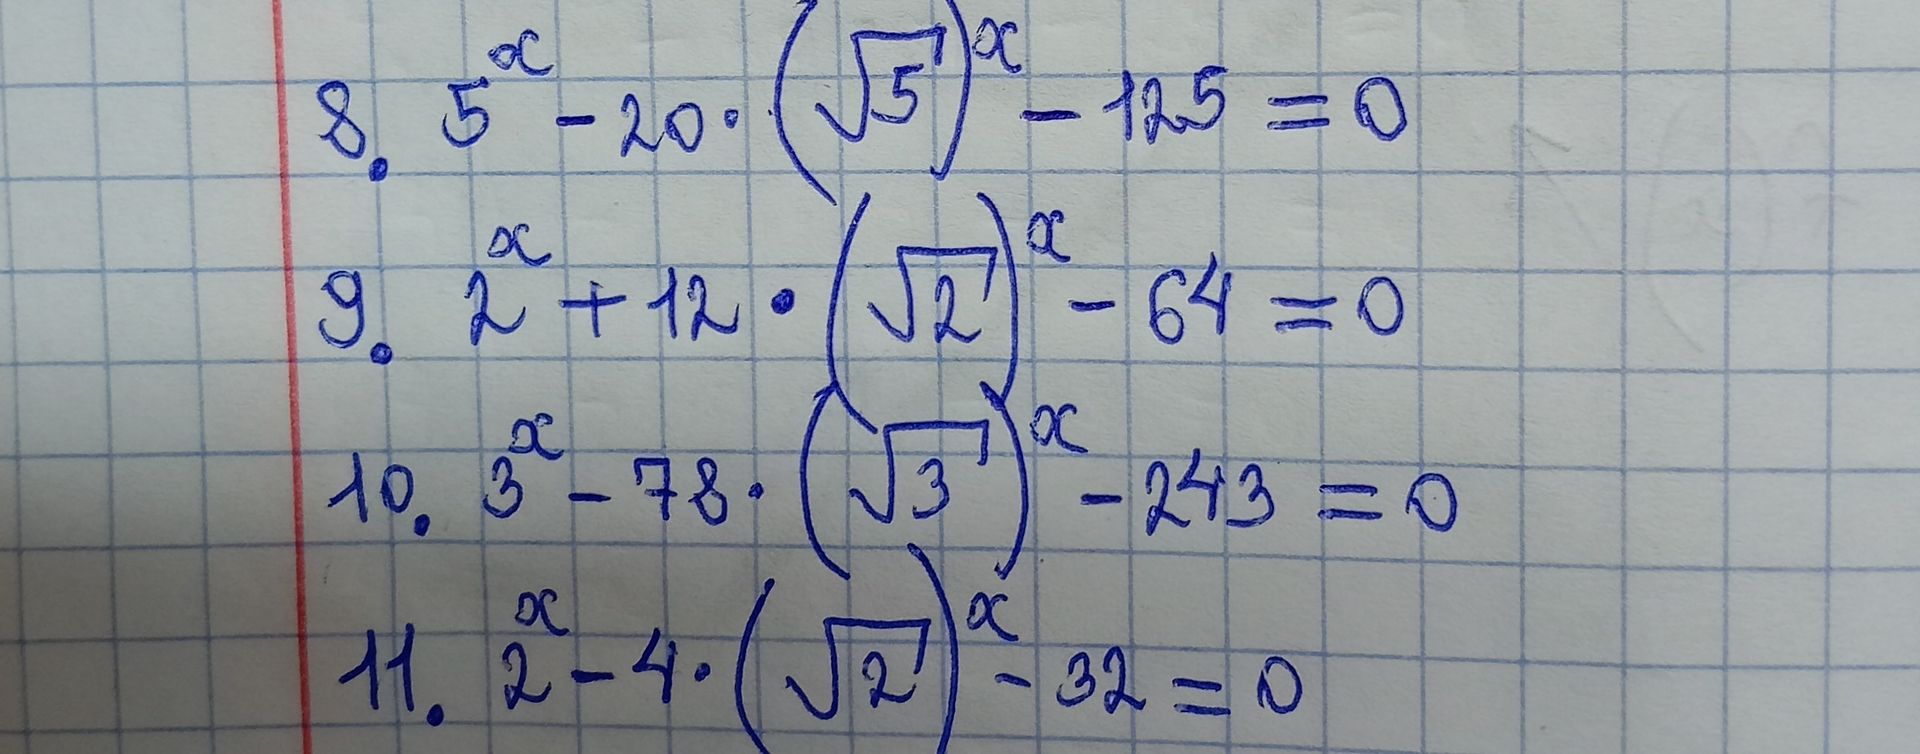 8. 5^x - 20 · (√5)^x - 125 = 0
9. 2^x + 12 · (√2)^x - 64 = 0
10. 3^x - 78 · (√3)^x - 243 = 0
11. 2^x - 4 · (√2)^x - 32 = 0